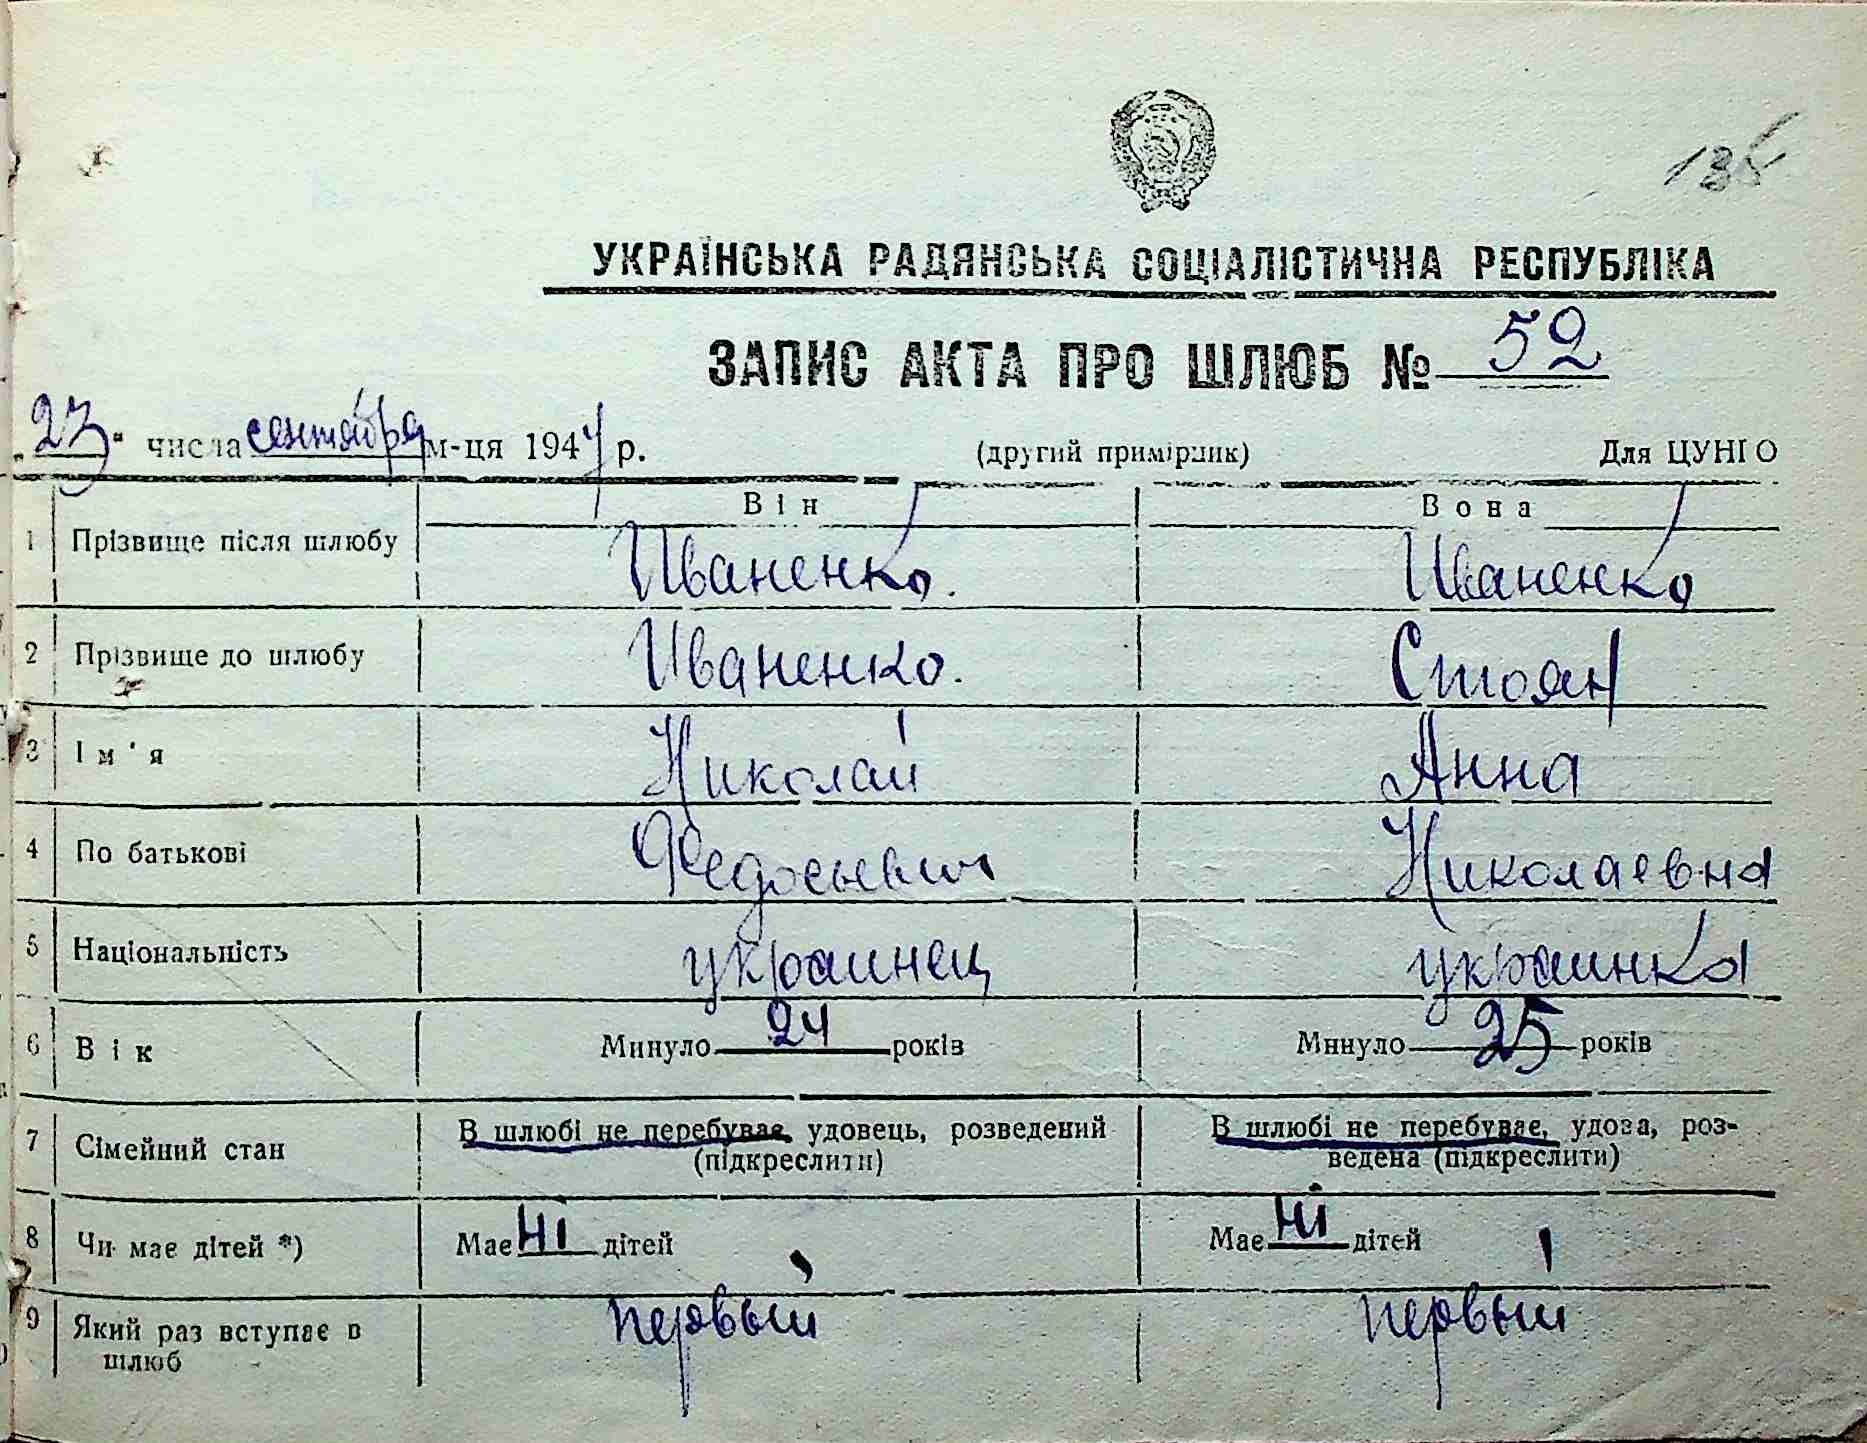 135
УКРАЇНСЬКА РАДЯНСЬКА СОЦІАЛІСТИЧНА РЕСПУБЛІКА
ЗАПИС АКТА ПРО ШЛЮБ № 52
„23" числа сентября м-ця 1944 р. (другий примірник) Для ЦУНГО
Він Вона
1 Прізвище після шлюбу Иваненко. Иваненко
2 Прізвище до шлюбу Иваненко. Стоян
3 Ім'я Николай Анна
4 По батькові Федосьевич Николаевна
5 Національність украинец украинка
6 Вік Минуло 24 років Минуло 25 років
7 Сімейний стан В шлюбі не перебуває, удовець, розведений В шлюбі не перебуває, удова, роз-
(підкреслити) ведена (підкреслити)
8 Чи має дітей *) Має ні дітей Має ні дітей
9 Який раз вступає в первый первый
шлюб